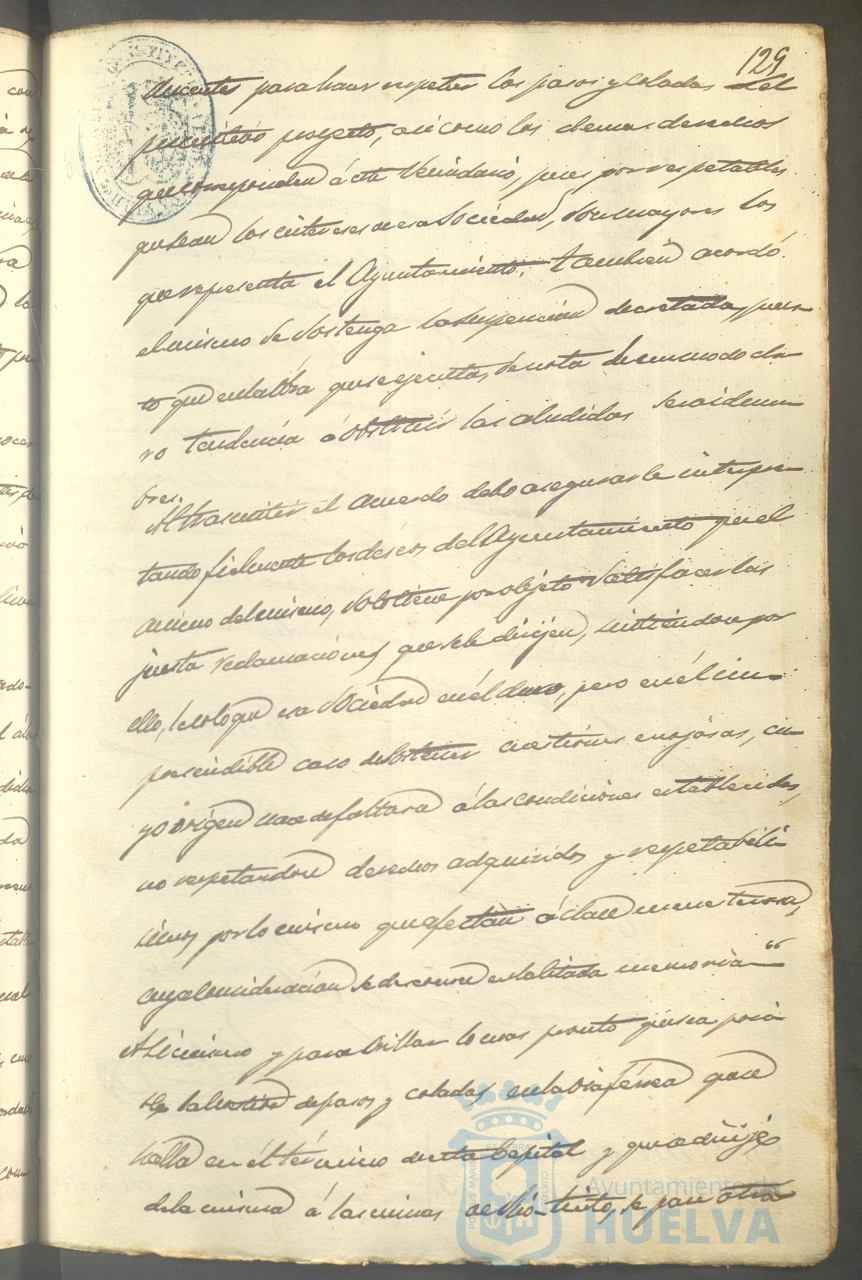 129
ducentes para hacer respetar los pasos y coladas del
primitivo proyecto, asi como los demas derechos
que corresponden á este Vecindario, pues por respetables
que sean los intereses de esa Sociedad, son mayores los
que representa el Ayuntamiento; tambien acordó
el mismo se sostenga la suspencion decretada, pues-
to que en la obra que se ejecuta, se nota de un modo cla-
ro tendencia á obstruir las aludidas servidum-
bres.
Al trasmitir el acuerdo debo asegurarle interpre-
tando fielmente los deseos del Ayuntamiento que el
animo del mismo, solo tiene por objeto satisfacer las
justas reclamaciones que se le dirijen, sintiendo por
ello, lo coloque esa Sociedad en el duro, pero en el im-
prescindible caso de sostener cuestiones enojosas, cu-
yo origen nace de faltar á las condiciones establecidas,
no respetandose derechos adquiridos y respetabili-
simos por lo mismo que afectan á clase menesterosa,
cuya consideracion se desconoce en la citada memoria"
Asi mismo y para orillar lo mas pronto que sea posi-
ble la de pasos y coladas en la via ferrea que se
halla en el término de esta Capital y que se dirije
de la misma á las minas de Rio-Tinto, se pase otra
Ayuntamiento de
HUELVA